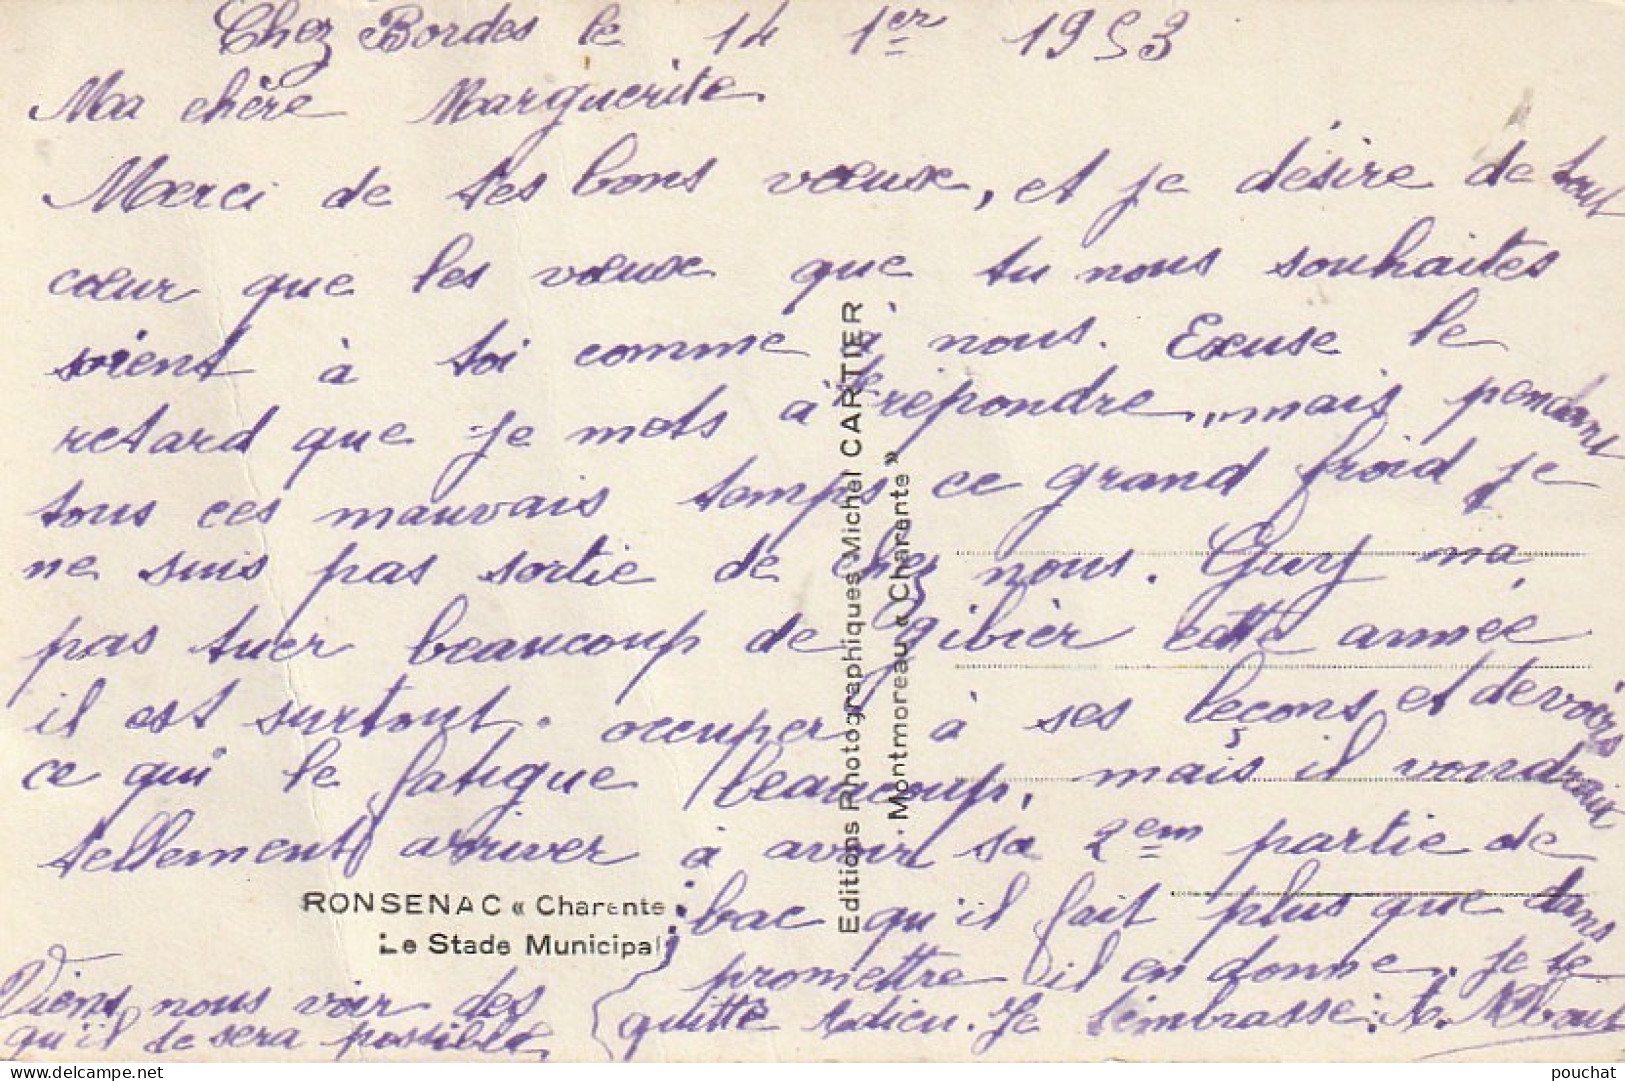 Chez Bordes le 14 1er 1953
Ma chère Marguerite
Merci de tes bons vœux, et je désire de tout
cœur que les vœux que tu nous souhaites
soient à toi comme à nous. Excuse le
retard que je mets à te répondre, mais pendant
tous ces mauvais temps ce grand froid je
ne suis pas sortie de chez nous. Guy ma
pas tuer beaucoup de gibier cette année
il est surtout occuper à ses leçons et devoirs
ce qui le fatigue beaucoup, mais il voudrait
tellement arriver à avoir sa 2em partie de
bac qu'il fait plus que dans
promettre il en donne. Je te
quitte adieu. Je t'embrasse:
Viens nous voir dès
qu'il te sera possible
RONSENAC « Charente
Le Stade Municipal
Editions Photographiques Michel CARTIER
Montmoreau « Charente »
pouchat